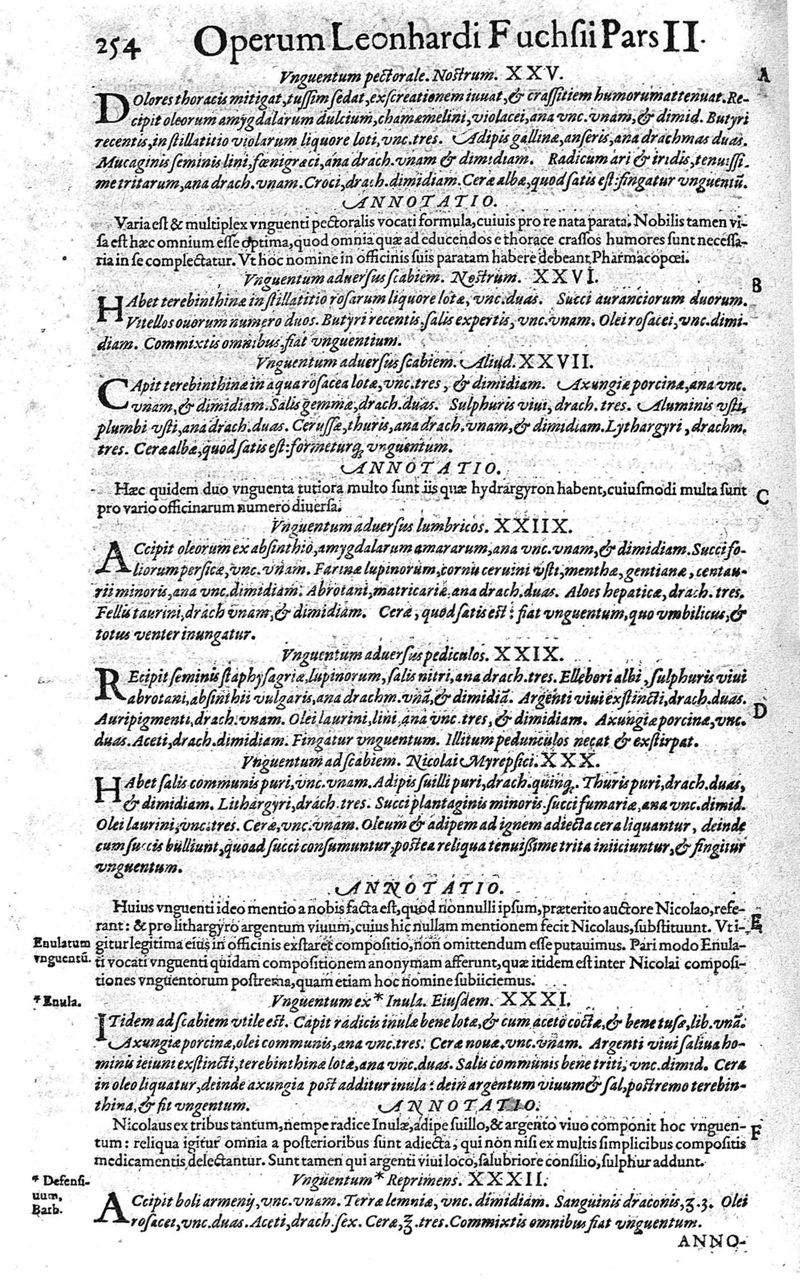 254 Operum Leonhardi Fuchsii Pars II.
Vnguentum pectorale. Nostrum. XXV.
A
DOlores thoracis mitigat, tussim sedat, exscreationem iuuat, & crassitiem humorum attenuat. Re-
cipit oleorum amygdalarum dulcium, chamæmelini, violacei, ana vnc. vnam, & dimid. Butyri
recentis, in stillatitio violarum liquore loti, vnc. tres. Adipis gallinæ, anseris, ana drachmas duas.
Mucaginis seminis lini, fœnigræci, ana drach. vnam & dimidiam. Radicum ari & iridis, tenuissi-
me tritarum, ana drach. vnam. Croci, drach. dimidiam. Ceræ albæ, quod satis est: fingatur vnguentū.
ANNOTATIO.
Varia est & multiplex vnguenti pectoralis vocati formula, cuiuis pro re nata parata. Nobilis tamen vi-
sa est hæc omnium esse optima, quod omnia quæ ad educendos e thorace crassos humores sunt necessa-
ria in se complectatur. Vt hoc nomine in officinis suis paratam habere debeant Pharmacopœi.
Vnguentum aduersus scabiem. Nostrum. XXVI.
B
HAbet terebinthinæ in stillatitio rosarum liquore lotæ, vnc. duas. Succi auranciorum duorum.
Vitellos ouorum numero duos. Butyri recentis, salis expertis, vnc. vnam. Olei rosacei, vnc. dimi-
diam. Commixtis omnibus, fiat vnguentium.
Vnguentum aduersus scabiem. Aliud. XXVII.
CApit terebinthinæ in aqua rosacea lotæ, vnc. tres, & dimidiam. Axungiæ porcinæ, ana vnc.
vnam, & dimidiam. Salis gemmæ, drach. duas. Sulphuris viui, drach. tres. Aluminis vsti,
plumbi vsti, ana drach. duas. Cerussæ, thuris, ana drach. vnam, & dimidiam. Lythargyri, drachm.
tres. Ceræ albæ, quod satis est: formeturq́; vnguentum.
ANNOTATIO.
Hæc quidem duo vnguenta tutiora multo sunt iis quæ hydrargyron habent, cuiusmodi multa sunt
C
pro vario officinarum numero diuersa.
Vnguentum aduersus lumbricos. XXIIX.
ACcipit oleorum ex absinthio, amygdalarum amararum, ana vnc. vnam, & dimidiam. Succi fo-
liorum persicæ, vnc. vnam. Farinæ lupinorum, cornu ceruini vsti, menthæ, gentianæ, centau-
rii minoris, ana vnc. dimidiam. Abrotani, matricariæ, ana drach. duas. Aloes hepaticæ, drach. tres.
Fellis taurini, drach vnam, & dimidiam. Ceræ, quod satis est: fiat vnguentum, quo vmbilicus, &
totus venter inungatur.
Vnguentum aduersus pediculos. XXIX.
REcipit seminis staphysagriæ, lupinorum, salis nitri, ana drach. tres. Ellebori albi, sulphuris viui
abrotani, absinthii vulgaris, ana drachm. vnā, & dimidiā. Argenti viui exstincti, drach. duas.
D
Auripigmenti, drach. vnam. Olei laurini, lini, ana vnc. tres, & dimidiam. Axungiæ porcinæ, vnc.
duas. Aceti, drach. dimidiam. Fingatur vnguentum. Illitum pedunculos necat & exstirpat.
Vnguentum ad scabiem. Nicolai Myrepsici. XXX.
HAbet salis communis puri, vnc. vnam. Adipis suilli puri, drach. quinq;. Thuris puri, drach. duas,
& dimidiam. Lithargyri, drach. tres. Succi plantaginis minoris. succi fumariæ, ana vnc. dimid.
Olei laurini, vnc. tres. Ceræ, vnc. vnam. Oleum & adipem ad ignem adiecta cera liquantur, deinde
cum succis bulliunt, quoad succi consumuntur, postea reliqua tenuißime trita iniiciuntur, & fingitur
vnguentum.
ANNOTATIO.
Huius vnguenti ideo mentio a nobis facta est, quod nonnulli ipsum, præterito auctore Nicolao, refe-
rant: & pro lithargyro argentum viuum, cuius hic nullam mentionem fecit Nicolaus, substituunt. Vti-
E
Enulatum
vnguentū.
gitur legitima eius in officinis exstaret compositio, non omittendum esse putauimus. Pari modo Enula-
ti vocati vnguenti quidam compositionem anonymam afferunt, quæ itidem est inter Nicolai composi-
tiones vnguentorum postrema, quam etiam hoc nomine subiiciemus.
* Enula.
Vnguentum ex * Inula. Eiusdem. XXXI.
ITidem ad scabiem vtile est. Capit radicis inulæ bene lotæ, & cum aceto coctæ, & bene tusæ, lib. vnā.
Axungiæ porcinæ, olei communis, ana vnc. tres. Ceræ nouæ, vnc. vnam. Argenti viui saliua ho-
minis ieiuni exstincti, terebinthinæ lotæ, ana vnc. duas. Salis communis bene triti, vnc. dimid. Cera
in oleo liquatur, deinde axungia post additur inula: dein argentum viuum & sal, postremo terebin-
thina, & fit vngentum. ANNOTATIO.
Nicolaus ex tribus tantum, nempe radice Inulæ, adipe suillo, & argento viuo componit hoc vnguen-
F
tum: reliqua igitur omnia a posterioribus sunt adiecta, qui non nisi ex multis simplicibus compositis
medicamentis delectantur. Sunt tamen qui argenti viui loco, salubriore consilio, sulphur addunt.
* Defensi-
uum,
Barb.
Vnguentum * Reprimens. XXXII.
ACcipit boli armenij, vnc. vnam. Terræ lemniæ, vnc. dimidiam. Sanguinis draconis, ʒ. 3. Olei
rosacei, vnc. duas. Aceti, drach. sex. Ceræ, ʒ. tres. Commixtis omnibus fiat vnguentum.
ANNO-